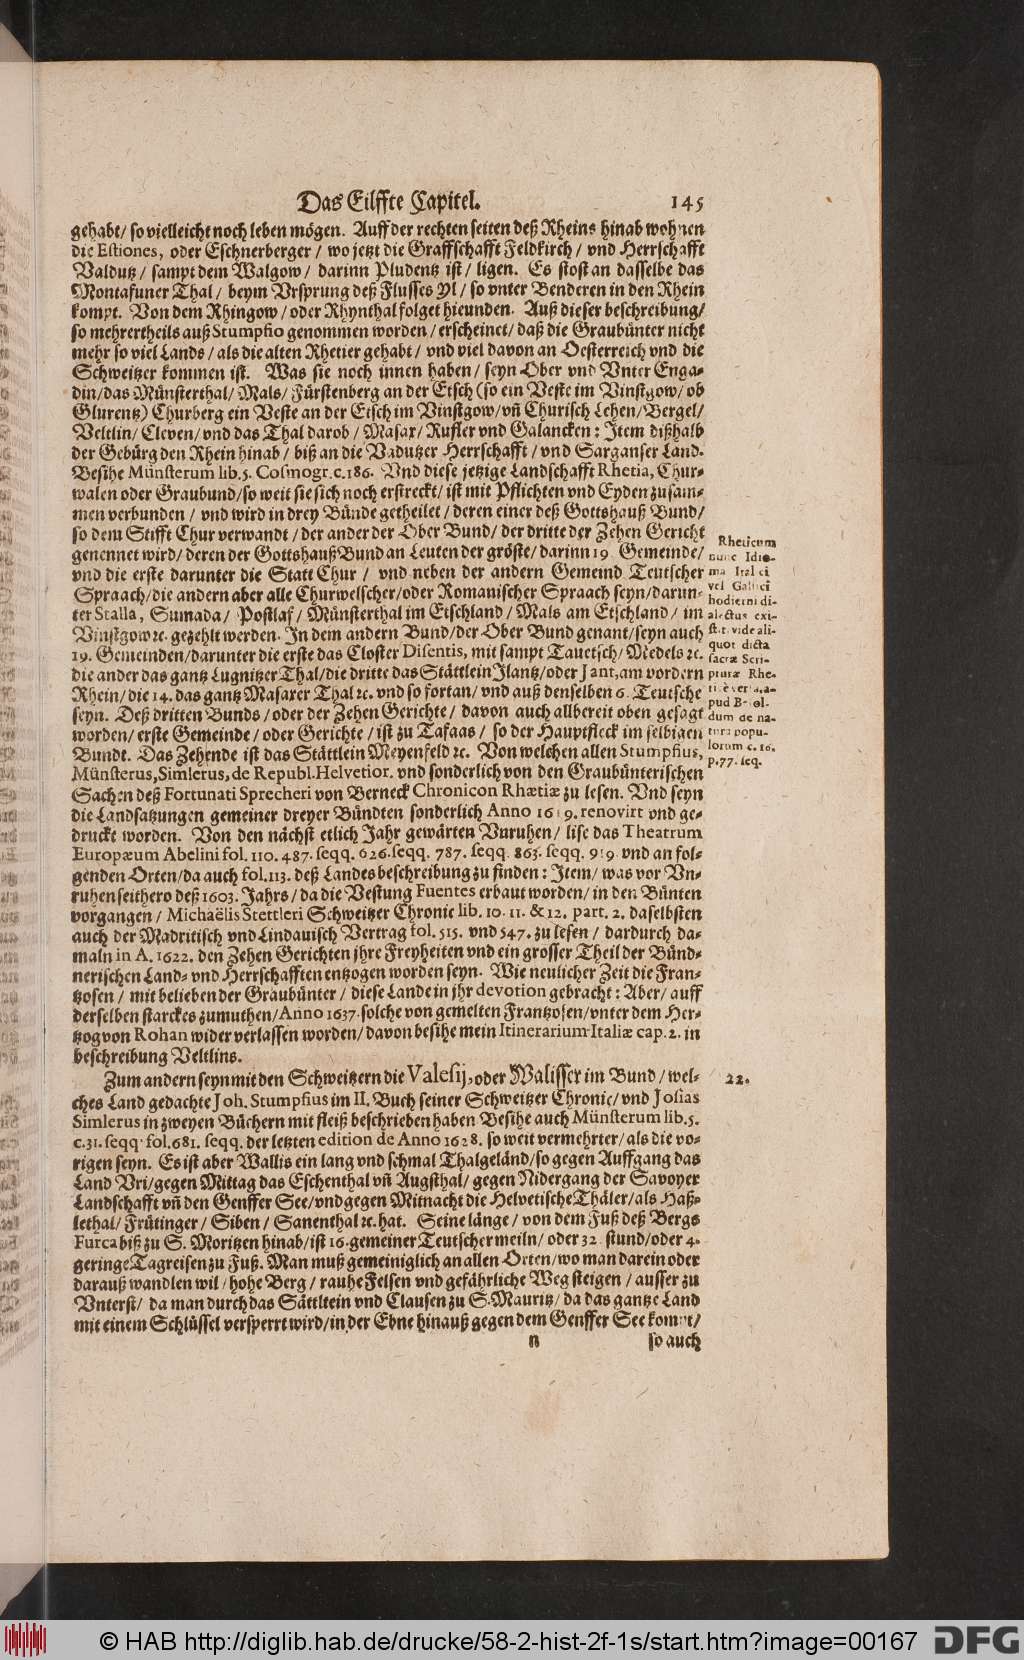 Das Eilffte Capitel. 145
gehabt/ so vielleicht noch leben mögen. Auff der rechten seiten deß Rheins hinab wohnen
die Estiones, oder Eschnerberger/ wo jetzt die Graffschafft Feldkirch/ vnd Herrschafft
Valdutz/ sampt dem Walgow/ darinn Pludentz ist/ ligen. Es stost an dasselbe das
Montafuner Thal/ beym Vrsprung deß Flusses Yl/ so vnter Benderen in den Rhein
kompt. Von dem Rhingow/ oder Rhynthal folget hieunden. Auß dieser beschreibung/
so mehrertheils auß Stumpfio genommen worden/ erscheinet/ daß die Graubünter nicht
mehr so viel Lands/ als die alten Rhetier gehabt/ vnd viel davon an Oesterreich vnd die
Schweitzer kommen ist. Was sie noch innen haben/ seyn Ober vnd Vnter Enga-
din/ das Münsterthal/ Mals/ Fürstenberg an der Etsch (so ein Veste im Vinstgow/ ob
Glurentz) Churberg ein Veste an der Etsch im Vinstgow/ vñ Churisch Lehen/ Bergel/
Veltlin/ Cleven/ vnd das Thal darob/ Masax/ Rufler vnd Galancken: Item dißhalb
der Gebürg den Rhein hinab/ biß an die Vadutzer Herrschafft/ vnd Sarganser Land.
Besihe Münsterum lib. 5. Cosmogr. c. 186. Vnd diese jetzige Landschafft Rhetia, Chur-
walen oder Graubund/ so weit sie sich noch erstreckt/ ist mit Pflichten vnd Eyden zusam-
men verbunden/ vnd wird in drey Bünde getheilet/ deren einer deß Gottshauß Bund/
so dem Stifft Chur verwandt/ der ander der Ober Bund/ der dritte der Zehen Gericht
genennet wird/ deren der Gottshauß Bund an Leuten der gröste/ darinn 19. Gemeinde/
vnd die erste darunter die Statt Chur/ vnd neben der andern Gemeind Teutscher
Spraach/ die andern aber alle Churwelscher/ oder Romanischer Spraach seyn/ darun-
ter Stalla, Sumada/ Postlaf/ Münsterthal im Etschland/ Mals am Etschland/ im
Vinstgow ꝛc. gezehlt werden. In dem andern Bund/ der Ober Bund genant/ seyn auch
19. Gemeinden/ darunter die erste das Closter Disentis, mit sampt Tauetsch/ Medels ꝛc.
die ander das gantz Lugnitzer Thal/ die dritte das Stättlein Ilantz/ oder Jant, am vordern
Rhein/ die 14. das gantz Masaxer Thal ꝛc. vnd so fortan/ vnd auß denselben 6. Teutsche
seyn. Deß dritten Bunds/ oder der Zehen Gerichte/ davon auch allbereit oben gesagt
worden/ erste Gemeinde/ oder Gerichte/ ist zu Tafaas/ so der Hauptfleck im selbigen
Bundt. Das Zehende ist das Stättlein Meyenfeld ꝛc. Von welchen allen Stumpfius,
Münsterus, Simlerus, de Republ. Helvetior. vnd sonderlich von den Graubünterischen
Sachen deß Fortunati Sprecheri von Berneck Chronicon Rhætiæ zu lesen. Vnd seyn
die Landsatzungen gemeiner dreyer Bündten sonderlich Anno 1619. renovirt vnd ge-
druckt worden. Von den nächst etlich Jahr gewärten Vnruhen/ lise das Theatrum
Europæum Abelini fol. 110. 487. seqq. 626. seqq. 787. seqq. 863. seqq. 919 vnd an fol-
genden Orten/ da auch fol. 113. deß Landes beschreibung zu finden: Item/ was vor Vn-
ruhen seithero deß 1603. Jahrs/ da die Vestung Fuentes erbaut worden/ in den Bünten
vorgangen/ Michaëlis Stettleri Schweitzer Chronic lib. 10. 11. & 12. part. 2. daselbsten
auch der Madritisch vnd Lindauisch Vertrag fol. 515. vnd 547. zu lesen/ dardurch da-
maln in A. 1622. den Zehen Gerichten jhre Freyheiten vnd ein grosser Theil der Bünd-
nerischen Land- vnd Herrschafften entzogen worden seyn. Wie neulicher Zeit die Fran-
tzosen/ mit belieben der Graubünter/ diese Lande in jhr devotion gebracht: Aber/ auff
derselben starckes zumuthen/ Anno 1637. solche von gemelten Frantzosen/ vnter dem Her-
tzog von Rohan wider verlassen worden/ davon besihe mein Itinerarium Italiæ cap. 2. in
beschreibung Veltlins.
Rheticum
nunc Idio-
ma Italici
vel Gallici
hodierni di-
alectus exi-
stit. vide ali-
quot dicta
sacræ Scri-
pturæ Rhe-
ticè versa, a-
pud Besol-
dum de na-
tura popu-
lorum c. 16.
p. 77. seq.
Zum andern seyn mit den Schweitzern die Valesij, oder Walisser im Bund/ wel- 22.
ches Land gedachte Joh. Stumpfius im 11. Buch seiner Schweitzer Chronic/ vnd Josias
Simlerus in zweyen Büchern mit fleiß beschrieben haben Besihe auch Münsterum lib. 5.
c. 31. seqq. fol. 681. seqq. der letzten edition de Anno 1628. so weit vermehrter/ als die vo-
rigen seyn. Es ist aber Wallis ein lang vnd schmal Thalgeländ/ so gegen Auffgang das
Land Vri/ gegen Mittag das Eschenthal vñ Augsthal/ gegen Nidergang der Savoyer
Landschafft vñ den Genffer See/ vnd gegen Mitnacht die Helvetische Thäler/ als Haß-
lethal/ Frütinger/ Siben/ Sanenthal ꝛc. hat. Seine länge/ von dem Fuß deß Bergs
Furca biß zu S. Moritzen hinab/ ist 16. gemeiner Teutscher meiln/ oder 32. stund/ oder 4.
geringe Tagreisen zu Fuß. Man muß gemeiniglich an allen Orten/ wo man darein oder
darauß wandlen wil/ hohe Berg/ rauhe Felsen vnd gefährliche Weg steigen/ ausser zu
Vnterst/ da man durch das Sättltein vnd Clausen zu S. Mauritz/ da das gantze Land
mit einem Schlüssel versperrt wird/ in der Ebne hinauß gegen dem Genffer See kompt/
n so auch
© HAB http://diglib.hab.de/drucke/58-2-hist-2f-1s/start.htm?image=00167 DFG